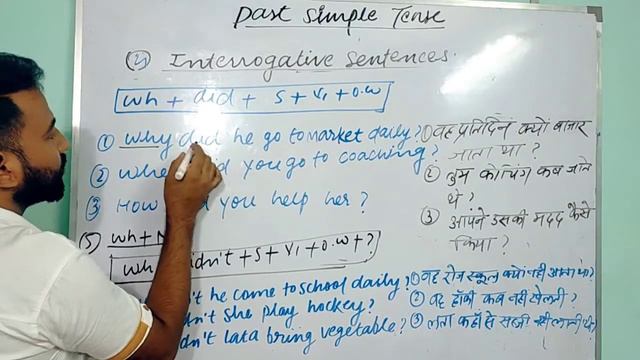 Past Simple Tense
(4) Interrogative Sentences.
wh + did + S + V₁ + O.W
① Why did he go to market daily?
② Whe d you go to coaching?
③ How d you help her?
(5) wh + N
wh idn't + S + V₁ + O.W + ?
't he come to school daily?
dn't she play hockey?
dn't Lata bring vegetable?
① वह प्रतिदिन क्यों बाजार
जाता था?
② तुम कोचिंग कब जाते
थे?
③ आपने उसकी मदद कैसे
किया?
① वह रोज स्कूल क्यों नहीं आता था?
② वह हॉकी कब नहीं खेलती?
③ लता कहाँ से सब्जी नहीं लाती थी?